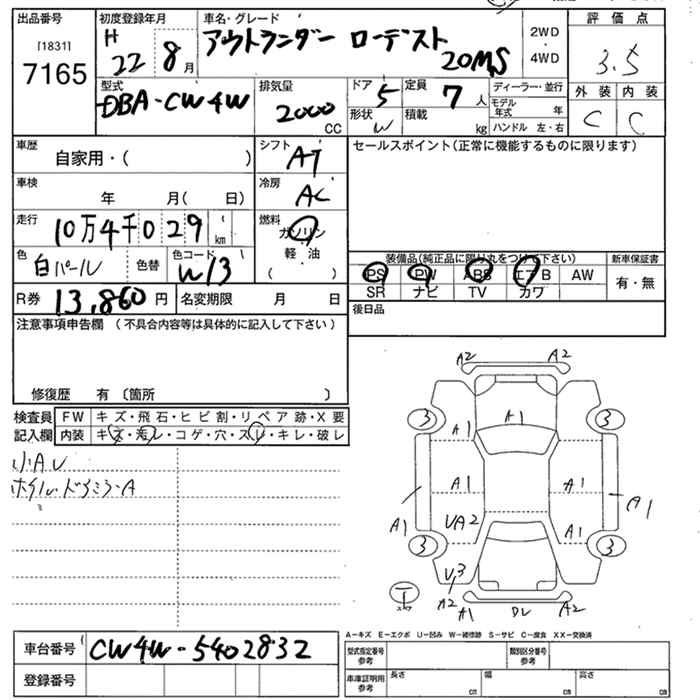 出品番号 [1831] 7165
初度登録年月 H 22 8月
車名・グレード アウトランダー ローデスト 20MS
2WD・4WD
評価点 3.5
型式 DBA-CW4W
排気量 2000 CC
ドア 5
形状 W
定員 7人
積載 kg
ディーラー・並行
モデル年式 年
ハンドル 左・右
外装 C
内装 C
車歴 自家用・( )
シフト AT
セールスポイント(正常に機能するものに限ります)
車検 年 月( 日)
冷房 AC
走行 10万4千029 ( km
燃料 ガソリン 軽油 ( )
色 白パール 色替
色コード W13
装備品(純正品に限り丸をつけて下さい)
PS PW ABS エアB AW
SR ナビ TV カワ
新車保証書 有・無
R券 13,860円
名変期限 月 日
後日品
注意事項申告欄 (不具合内容等は具体的に記入して下さい)
修復歴 有 〔箇所 〕
検査員記入欄
FW キズ・飛石・ヒビ割・リペア跡・X要
内装 キズ・汚レ・コゲ・穴・スレ・キレ・破レ
小AU
ホイル・ドアミラーA
A2 A2
3 A1 3
A1 A1
A1 A1
A1 UA2 A1 A1
3 3
U3
A2 A1 DL A2
車台番号 CW4W-5402832
登録番号
A−キズ E−エクボ U−凹み W−補修跡 S−サビ C−腐食 XX−交換済
型式指定番号 参考
類別区分番号 参考
車庫証明用 参考 長さ cm 幅 cm 高さ cm